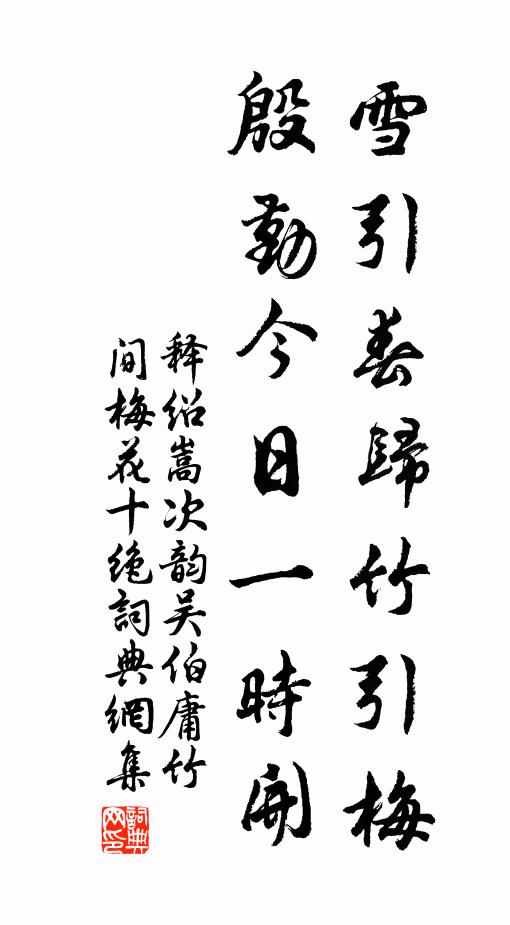 雪引春歸竹引梅
殷勤今日一時開
释绍嵩次韵吴伯庸竹
间梅花十绝詞典網集
詞典网印